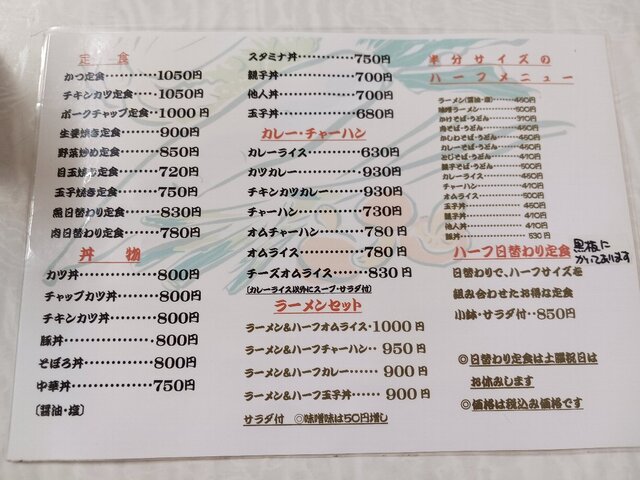 定食
かつ定食・・・・・・・・・・1050円
チキンカツ定食・・・・・1050円
ポークチャップ定食・・・1000円
生姜焼き定食・・・・・・・900円
野菜炒め定食・・・・・・・850円
目玉焼き定食・・・・・・・720円
玉子焼き定食・・・・・・・750円
魚日替わり定食・・・・・830円
肉日替わり定食・・・・・780円
丼物
カツ丼・・・・・・・・・・・・800円
チャップカツ丼・・・・・800円
チキンカツ丼・・・・・・・800円
豚丼・・・・・・・・・・・・・・800円
そぼろ丼・・・・・・・・・・800円
中華丼・・・・・・・・・・・・750円
〔醤油・塩〕
スタミナ丼・・・・・・・・・750円
親子丼・・・・・・・・・・・・700円
他人丼・・・・・・・・・・・・700円
玉子丼・・・・・・・・・・・・680円
カレー・チャーハン
カレーライス・・・・・・・630円
カツカレー・・・・・・・・・930円
チキンカツカレー・・・・930円
チャーハン・・・・・・・・・730円
オムチャーハン・・・・・780円
オムライス・・・・・・・・・780円
チーズオムライス・・・・830円
(カレーライス以外にスープ・サラダ付)
ラーメンセット
ラーメン&ハーフオムライス・・1000円
ラーメン&ハーフチャーハン・・950円
ラーメン&ハーフカレー・・・900円
ラーメン&ハーフ玉子丼・・・900円
サラダ付 ◎味噌味は50円増し
半分サイズの
ハーフメニュー
ラーメン(醤油・塩)・・・・460円
味噌ラーメン・・・・・・・・500円
かけそば・うどん・・・・・310円
肉そば・うどん・・・・・・・480円
かしわそば・うどん・・・・460円
カレーそば・うどん・・・・480円
とじそば・うどん・・・・・410円
親子そば・うどん・・・・・500円
カレーライス・・・・・・・・460円
チャーハン・・・・・・・・・・410円
オムライス・・・・・・・・・・500円
玉子丼・・・・・・・・・・・・・460円
親子丼・・・・・・・・・・・・・410円
他人丼・・・・・・・・・・・・・410円
豚丼・・・・・・・・・・・・・・・530円
ハーフ日替わり定食 黒板に
かいてあります
日替わりで、ハーフサイズを
組み合わせたお得な定食
小鉢・サラダ付・・850円
◎日替わり定食は土曜祝日は
お休みします
◎価格は税込み価格です